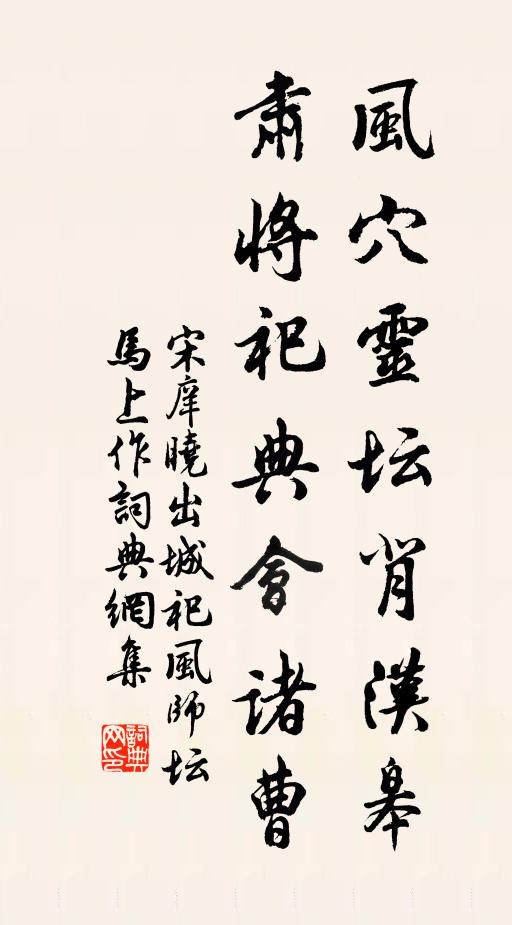 風穴靈坛背漢皋
肅將祀典會諸曹
宋庠曉出城祀風師坛
馬上作詞典網集
詞典网印